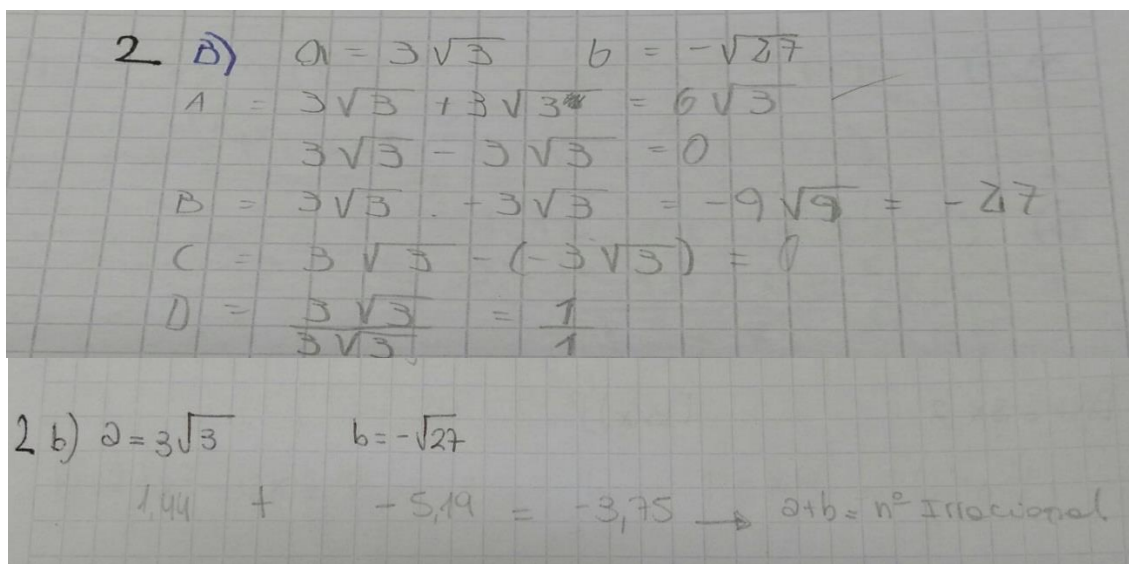 2 B) a = 3√3 b = -√27
A = 3√3 + 3√3 = 6√3
3√3 - 3√3 = 0
B = 3√3 . -3√3 = -9√9 = -27
C = 3√3 - (-3√3) = 0
D = 3√3/3√3 = 1/1
2 b) a = 3√3 b = -√27
1,44 + -5,19 = -3,75 → a+b = nº Irracional